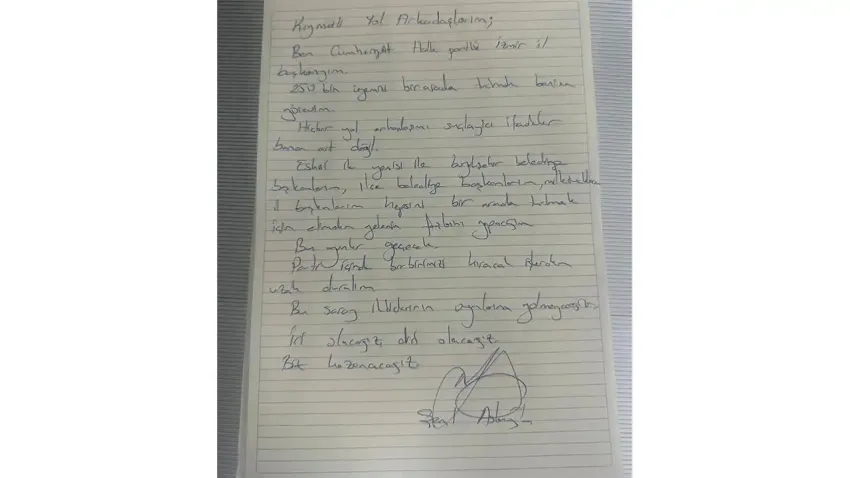 Kıymetli Yol Arkadaşlarım;
Ben Cumhuriyet Halk partisi İzmir il
başkanıyım.
250 bin üyemi bir arada tutmak benim
görevim.
Hiçbir yol arkadaşımı suçlayıcı ifadeler
bana ait değil.
Eski il yenisi ile büyükşehir belediye
başkanlarım, ilçe belediye başkanlarım, milletvekilleri
il başkanlarım hepsini bir arada tutmak
için elimden gelenin fazlasını yapacağım
Bu günler geçecek.
Parti içinde birbirimizi kıracak işlerden
uzak duralım
Bu saray iktidarının oyunlarına gelmeyeceğiz.
İri olacağız, diri olacağız
Biz kazanacağız